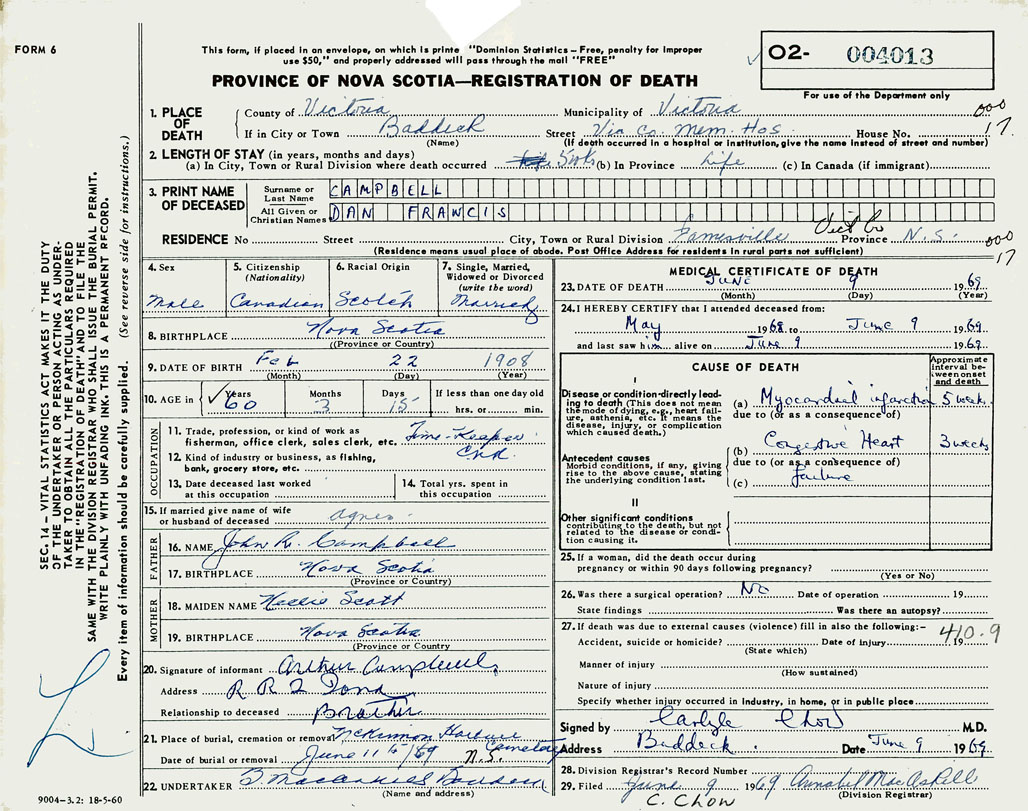 FORM 6
This form, if placed in an envelope, on which is printe "Dominion Statistics – Free, penalty for improper
use $50," and properly addressed will pass through the mail "FREE"
PROVINCE OF NOVA SCOTIA—REGISTRATION OF DEATH
O2- 004013
For use of the Department only
1. PLACE OF DEATH County of Victoria Municipality of Victoria 000
If in City or Town Baddeck Street Vic Co. Mem. Hos House No. 17.
(Name) (If death occurred in a hospital or institution, give the name instead of street and number)
2. LENGTH OF STAY (in years, months and days)
(a) In City, Town or Rural Division where death occurred 5 wks (b) In Province Life (c) In Canada (if immigrant)
3. PRINT NAME OF DECEASED
Surname or Last Name CAMPBELL
All Given or Christian Names DAN FRANCIS
RESIDENCE No Street City, Town or Rural Division Jamesville Vict Co Province N.S. 000
(Residence means usual place of abode. Post Office Address for residents in rural parts not sufficient) 17
4. Sex Male
5. Citizenship (Nationality) Canadian
6. Racial Origin Scotch
7. Single, Married, Widowed or Divorced (write the word) Married
8. BIRTHPLACE Nova Scotia
(Province or Country)
9. DATE OF BIRTH Feb 22 1908
(Month) (Day) (Year)
10. AGE in Years 60 Months 3 Days 15 If less than one day old
hrs. or min.
OCCUPATION
11. Trade, profession, or kind of work as fisherman, office clerk, sales clerk, etc. Time-Keeper
12. Kind of industry or business, as fishing, bank, grocery store, etc.
13. Date deceased last worked at this occupation
14. Total yrs. spent in this occupation
15. If married give name of wife or husband of deceased Agnes
FATHER
16. NAME John R. Campbell
17. BIRTHPLACE Nova Scotia
(Province or Country)
MOTHER
18. MAIDEN NAME Nellie Scott
19. BIRTHPLACE Nova Scotia
(Province or Country)
20. Signature of informant Arthur Campbell
Address R R 2 Iona
Relationship to deceased Brother
21. Place of burial, cremation or removal McKinnon Harbour Cemetery
Date of burial or removal June 11 /69 N.S.
22. UNDERTAKER
(Name and address)
9004—3.2: 18-5-60
MEDICAL CERTIFICATE OF DEATH
23. DATE OF DEATH JUNE 9 1969
(Month) (Day) (Year)
24. I HEREBY CERTIFY that I attended deceased from:
May 1968 to June 9 1969
and last saw him alive on June 9 1969
CAUSE OF DEATH
Approximate interval between onset and death
I
Disease or condition directly leading to death (This does not mean the mode of dying, e.g., heart failure, asthenia, etc. It means the disease, injury, or complication which caused death.)
(a) Myocardial infarction 5 weeks
due to (or as a consequence of)
(b) Congestive Heart 3 weeks
Antecedent causes
Morbid conditions, if any, giving rise to the above cause, stating the underlying condition last.
due to (or as a consequence of)
(c) failure
II
Other significant conditions
contributing to the death, but not related to the disease or condition causing it.
25. If a woman, did the death occur during
pregnancy or within 90 days following pregnancy?
(Yes or No)
26. Was there a surgical operation? No Date of operation 19
State findings Was there an autopsy?
27. If death was due to external causes (violence) fill in also the following:– 410.9
Accident, suicide or homicide? Date of injury 19
(State which)
Manner of injury
(How sustained)
Nature of injury
Specify whether injury occurred in industry, in home, or in public place
Signed by Carlyle Chow M.D.
Address Baddeck. Date June 9 1969
28. Division Registrar's Record Number
29. Filed June 9 1969 Annabel MacAskill
(Division Registrar)
C. Chow
SEC. 14 – VITAL STATISTICS ACT MAKES IT THE DUTY
OF THE UNDERTAKER OR PERSON ACTING AS UNDER-
TAKER TO OBTAIN ALL THE PARTICULARS REQUIRED
IN THE "REGISTRATION OF DEATH" AND TO FILE THE
SAME WITH THE DIVISION REGISTRAR WHO SHALL ISSUE THE BURIAL PERMIT.
WRITE PLAINLY WITH UNFADING INK. THIS IS A PERMANENT RECORD.
Every item of information should be carefully supplied. (See reverse side for instructions.)